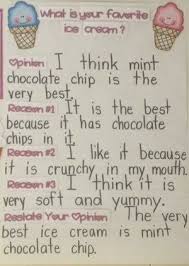 What is your favorite
ice cream?
Opinion I think mint
chocolate chip is the
very best.
Reason #1 It is the best
because it has chocolate
chips in it.
Reason #2 I like it because
it is crunchy in my mouth.
Reason #3 I think it is
very soft and yummy.
Restate Your Opinion The very
best ice cream is mint
chocolate chip.